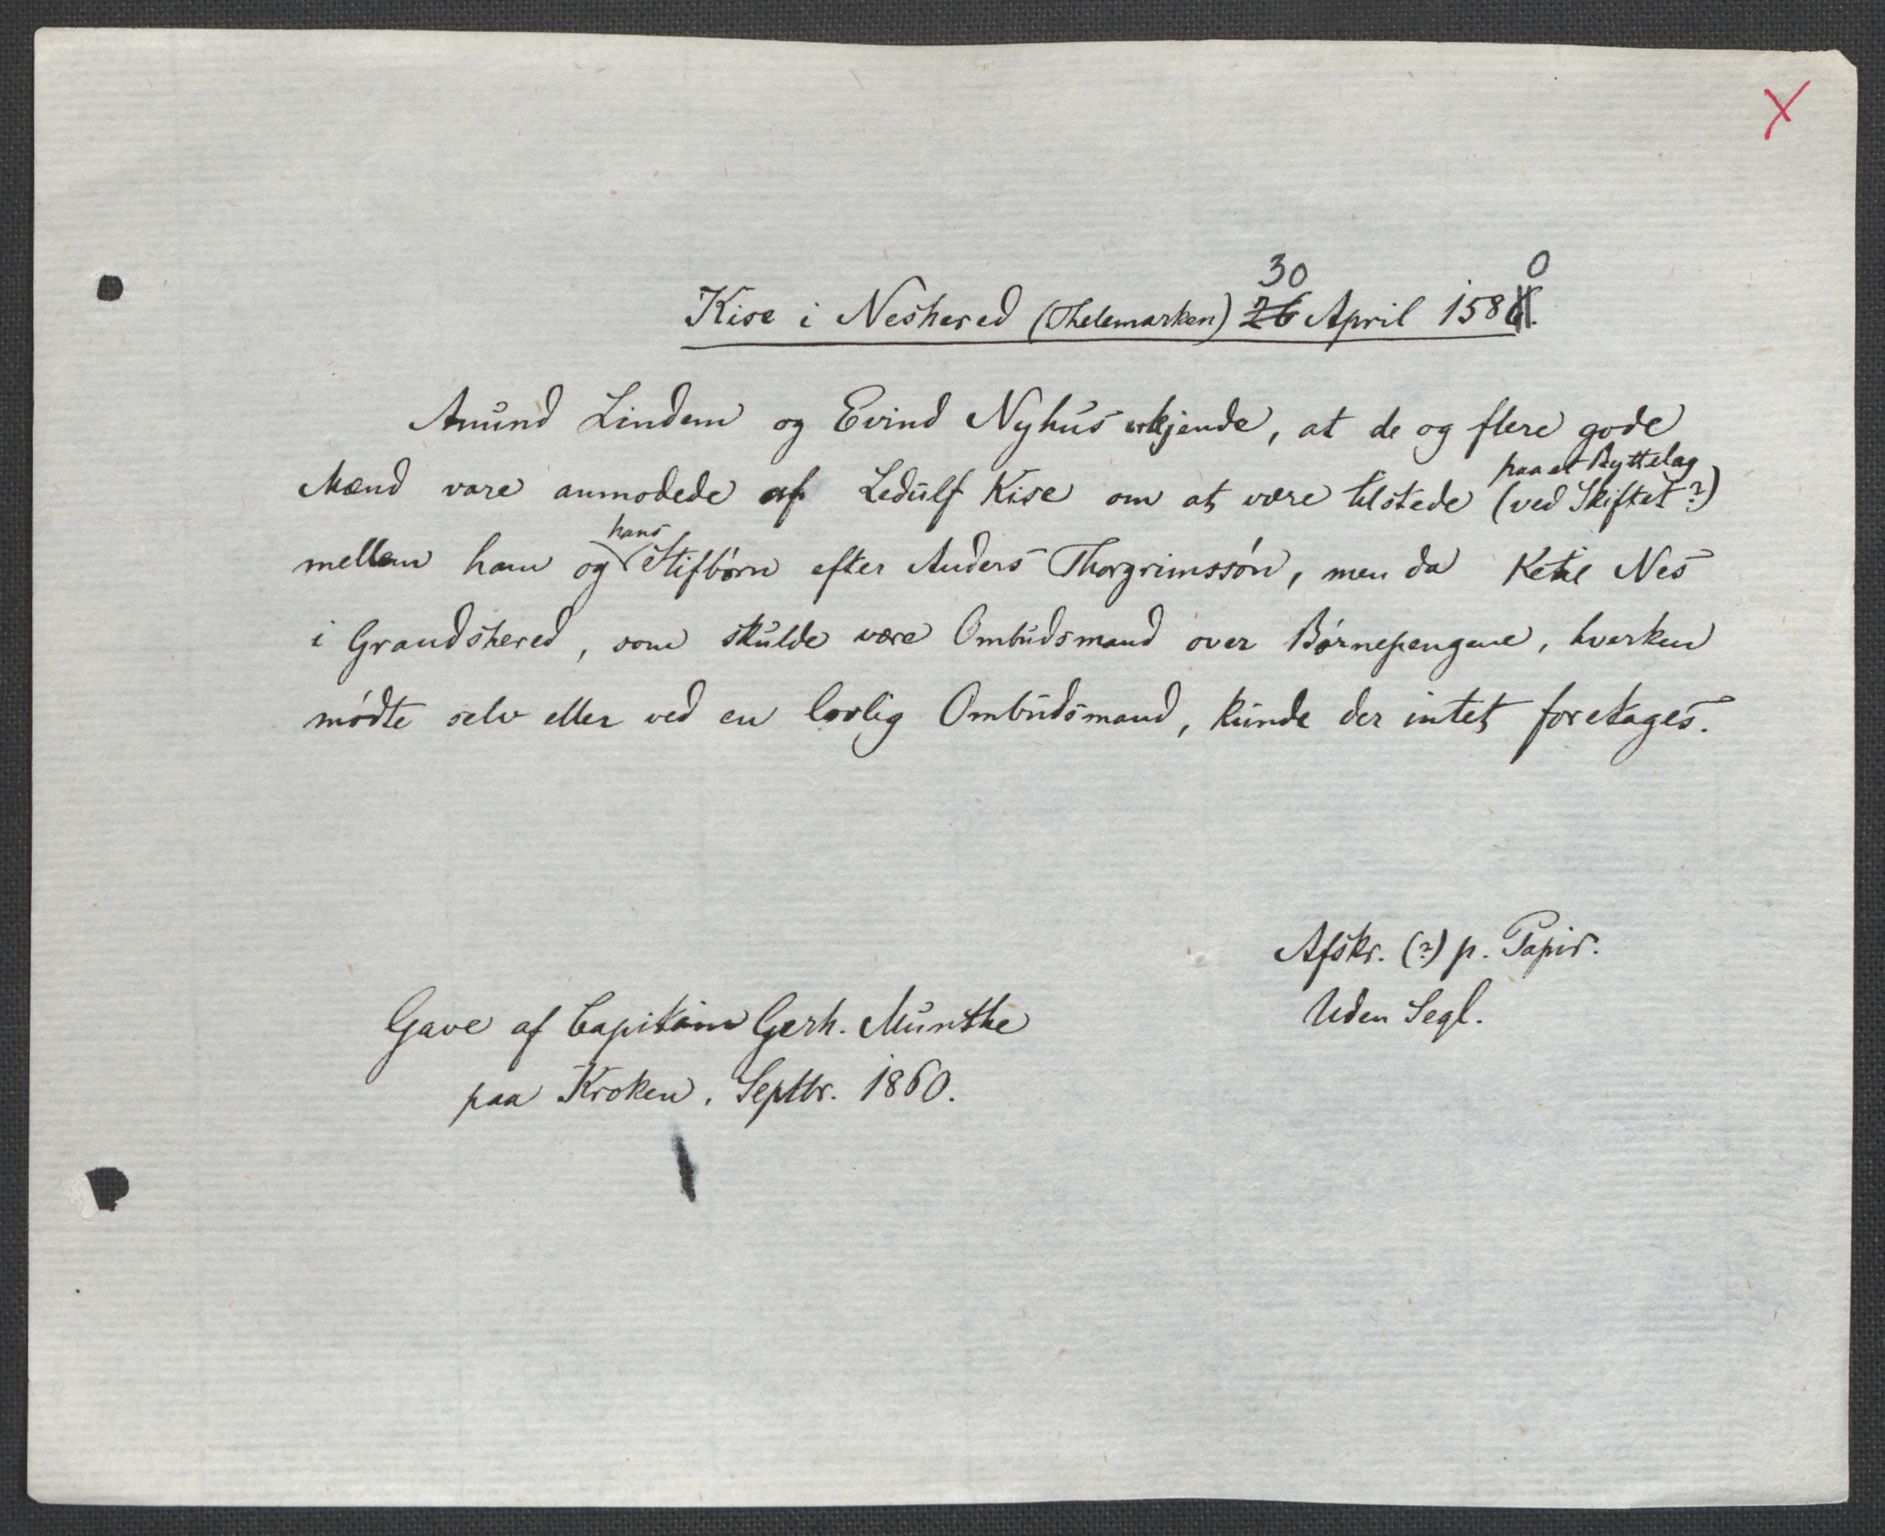 X
30 0
Kise i Neshered (Thelemarken) 26 April 158
Amund Lindem og Evind Nyhus erkjende, at de og flere gode
paa et Byttelag
Mænd vare anmodede af Ledulf Kise om at være tilstede (ved Skiftet?)
hans
mellem ham og Stifbørn efter Anders Thorgrimssøn, men da Ketil Nes
i Grandshered, som skulde være Ombudsmand over Børnepengene, hverken
mødte selv eller ved en lovlig Ombudsmand, kunde der intet foretages.
Afskr. (?) p. Papir.
Uden Segl.
Gave af Capitain Gerh. Munthe
paa Kroken, Septbr. 1860.